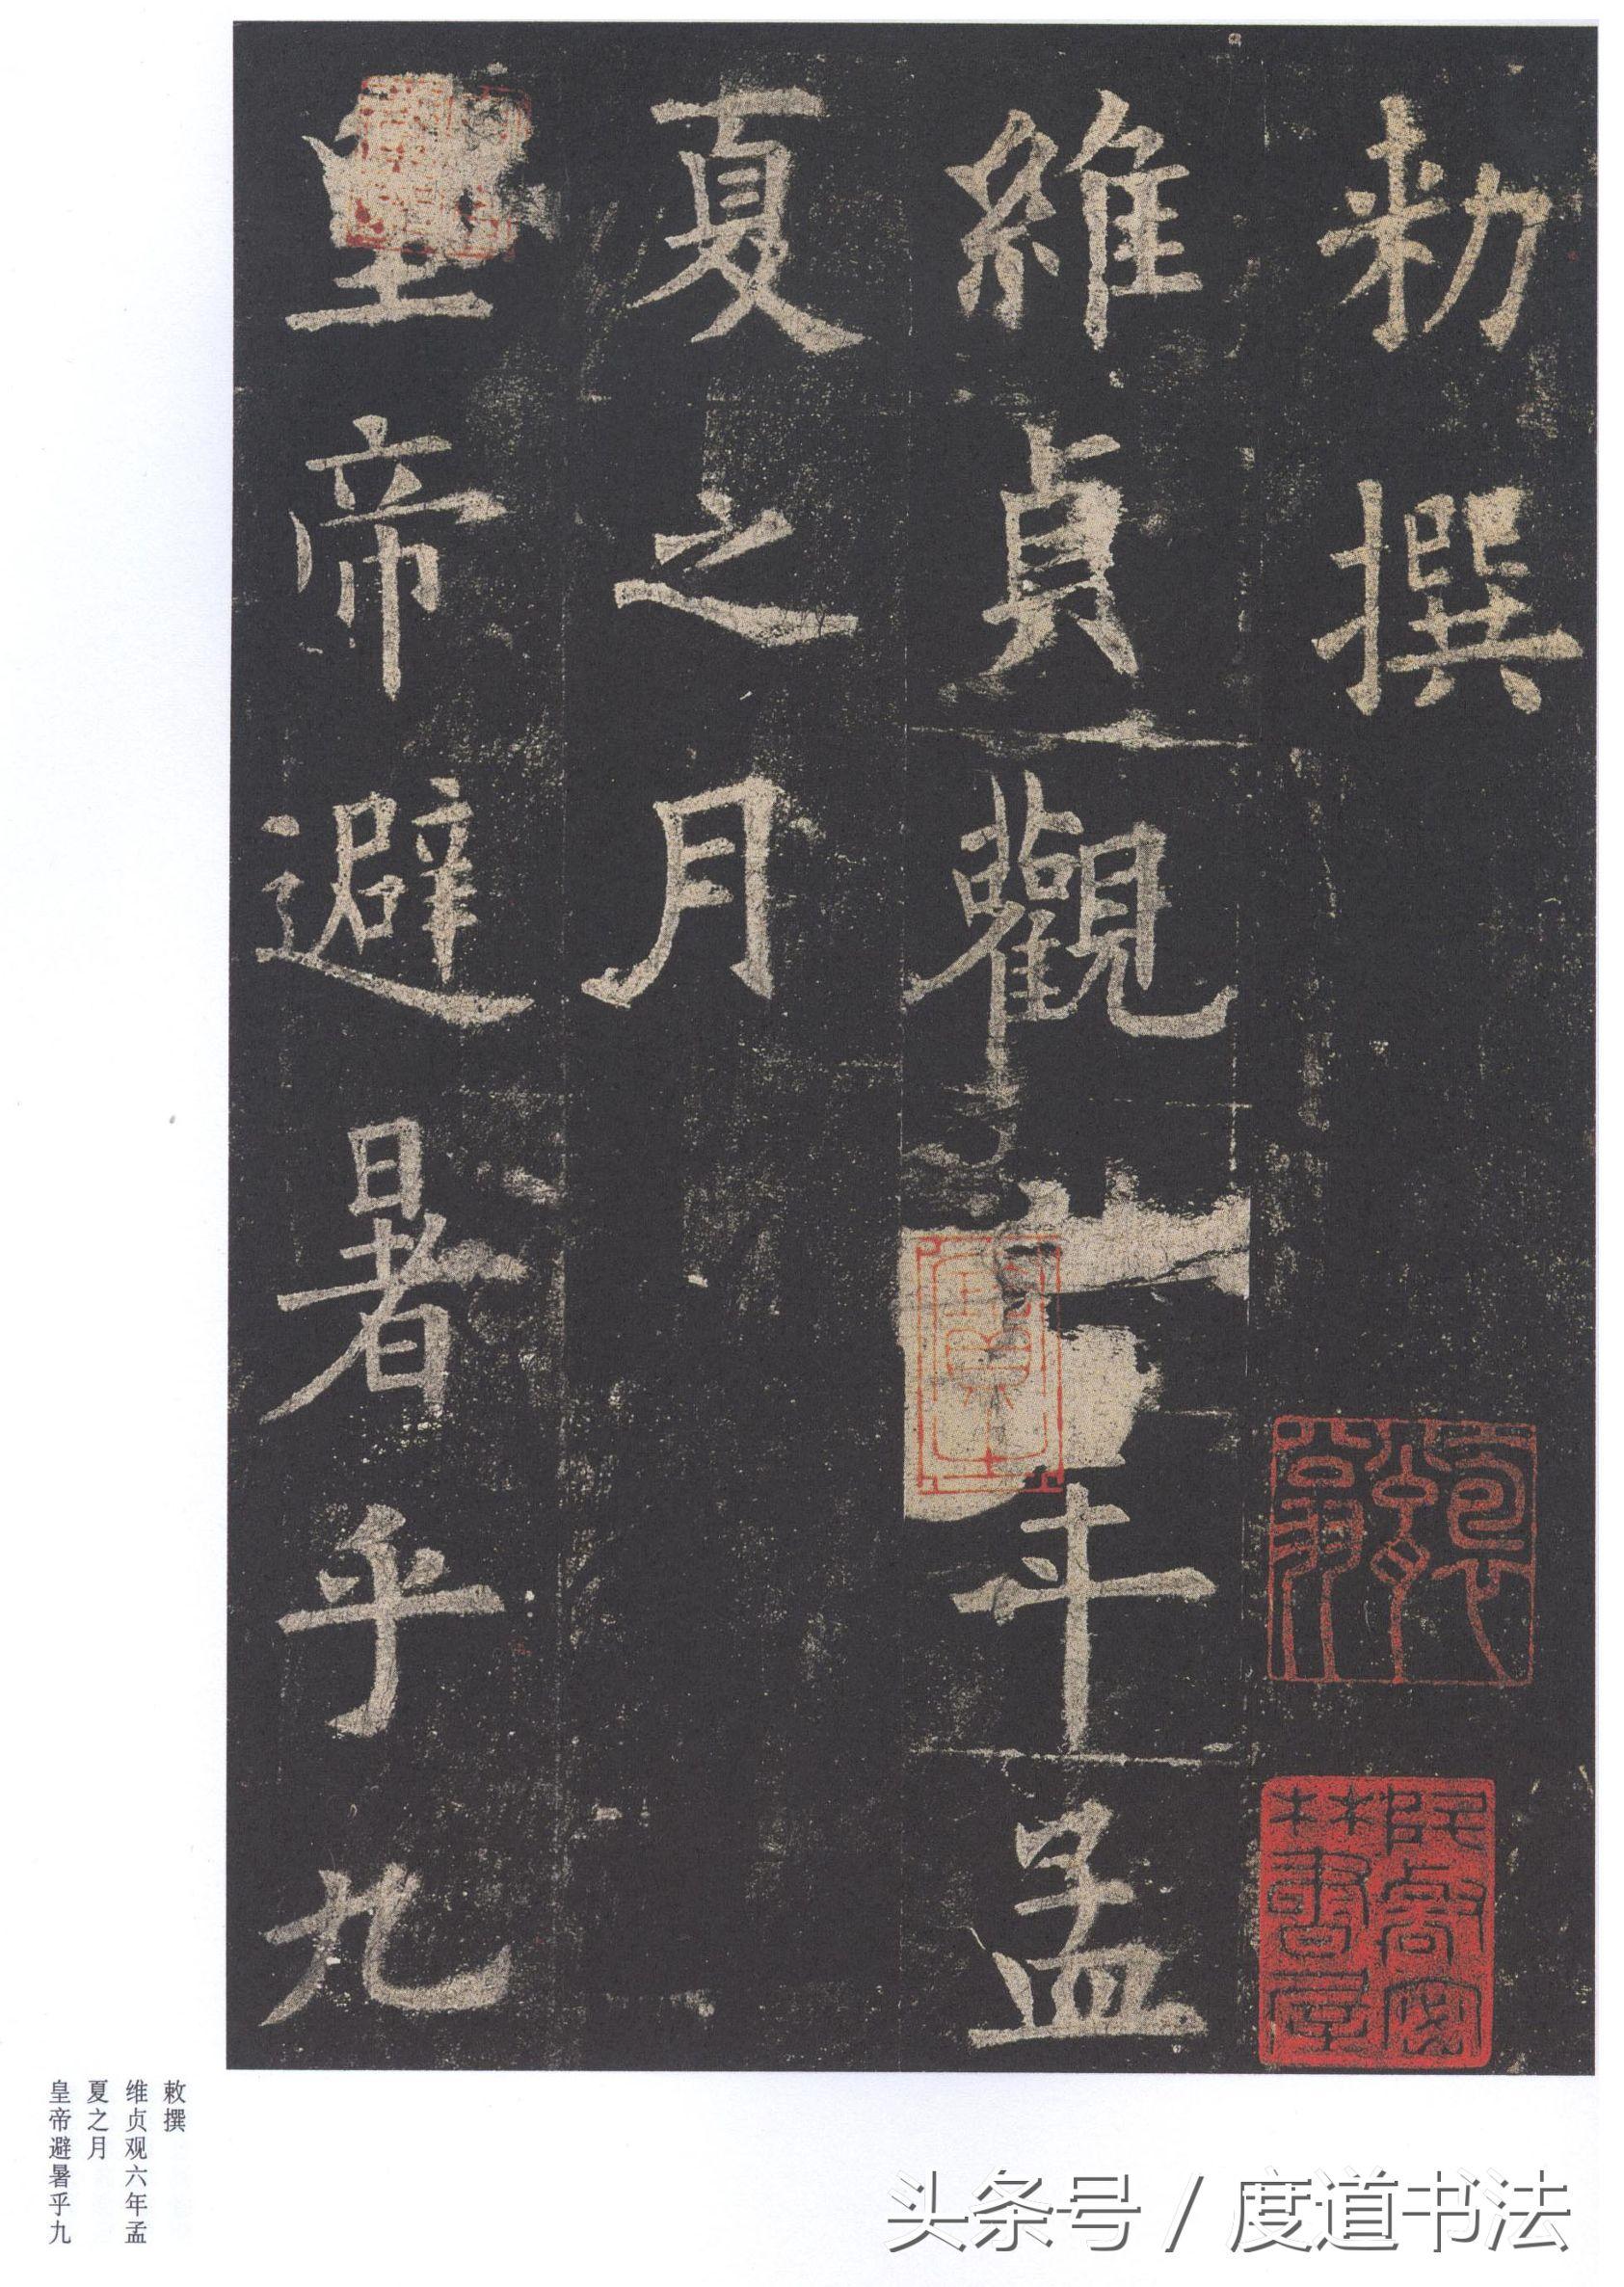 勑撰
維貞觀年孟
夏之月
皇帝避暑乎九
敕撰
维贞观六年孟
夏之月
皇帝避暑乎九
头条号 / 度道书法